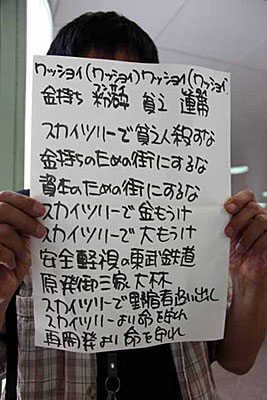 ワッショイ(ワッショイ)ワッショイ(ワッショイ
金持ち 粉砕 貧乏 連帯
スカイツリーで貧乏人殺すな
金持ちのための街にするな
資本のための街にするな
スカイツリーで金もうけ
スカイツリーで大もうけ
安全軽視の東武鉄道
原発御三家大林
スカイツリーで野宿者追い出し
スカイツリーより命を守れ
再開発より命を守れ